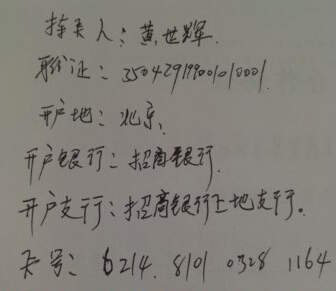 持卡人：黄世辉
身份证：350429199001010001
开户地：北京，
开户银行：招商银行.
开户支行：招商银行上地支行。
卡号：6214 8101 0328 1164